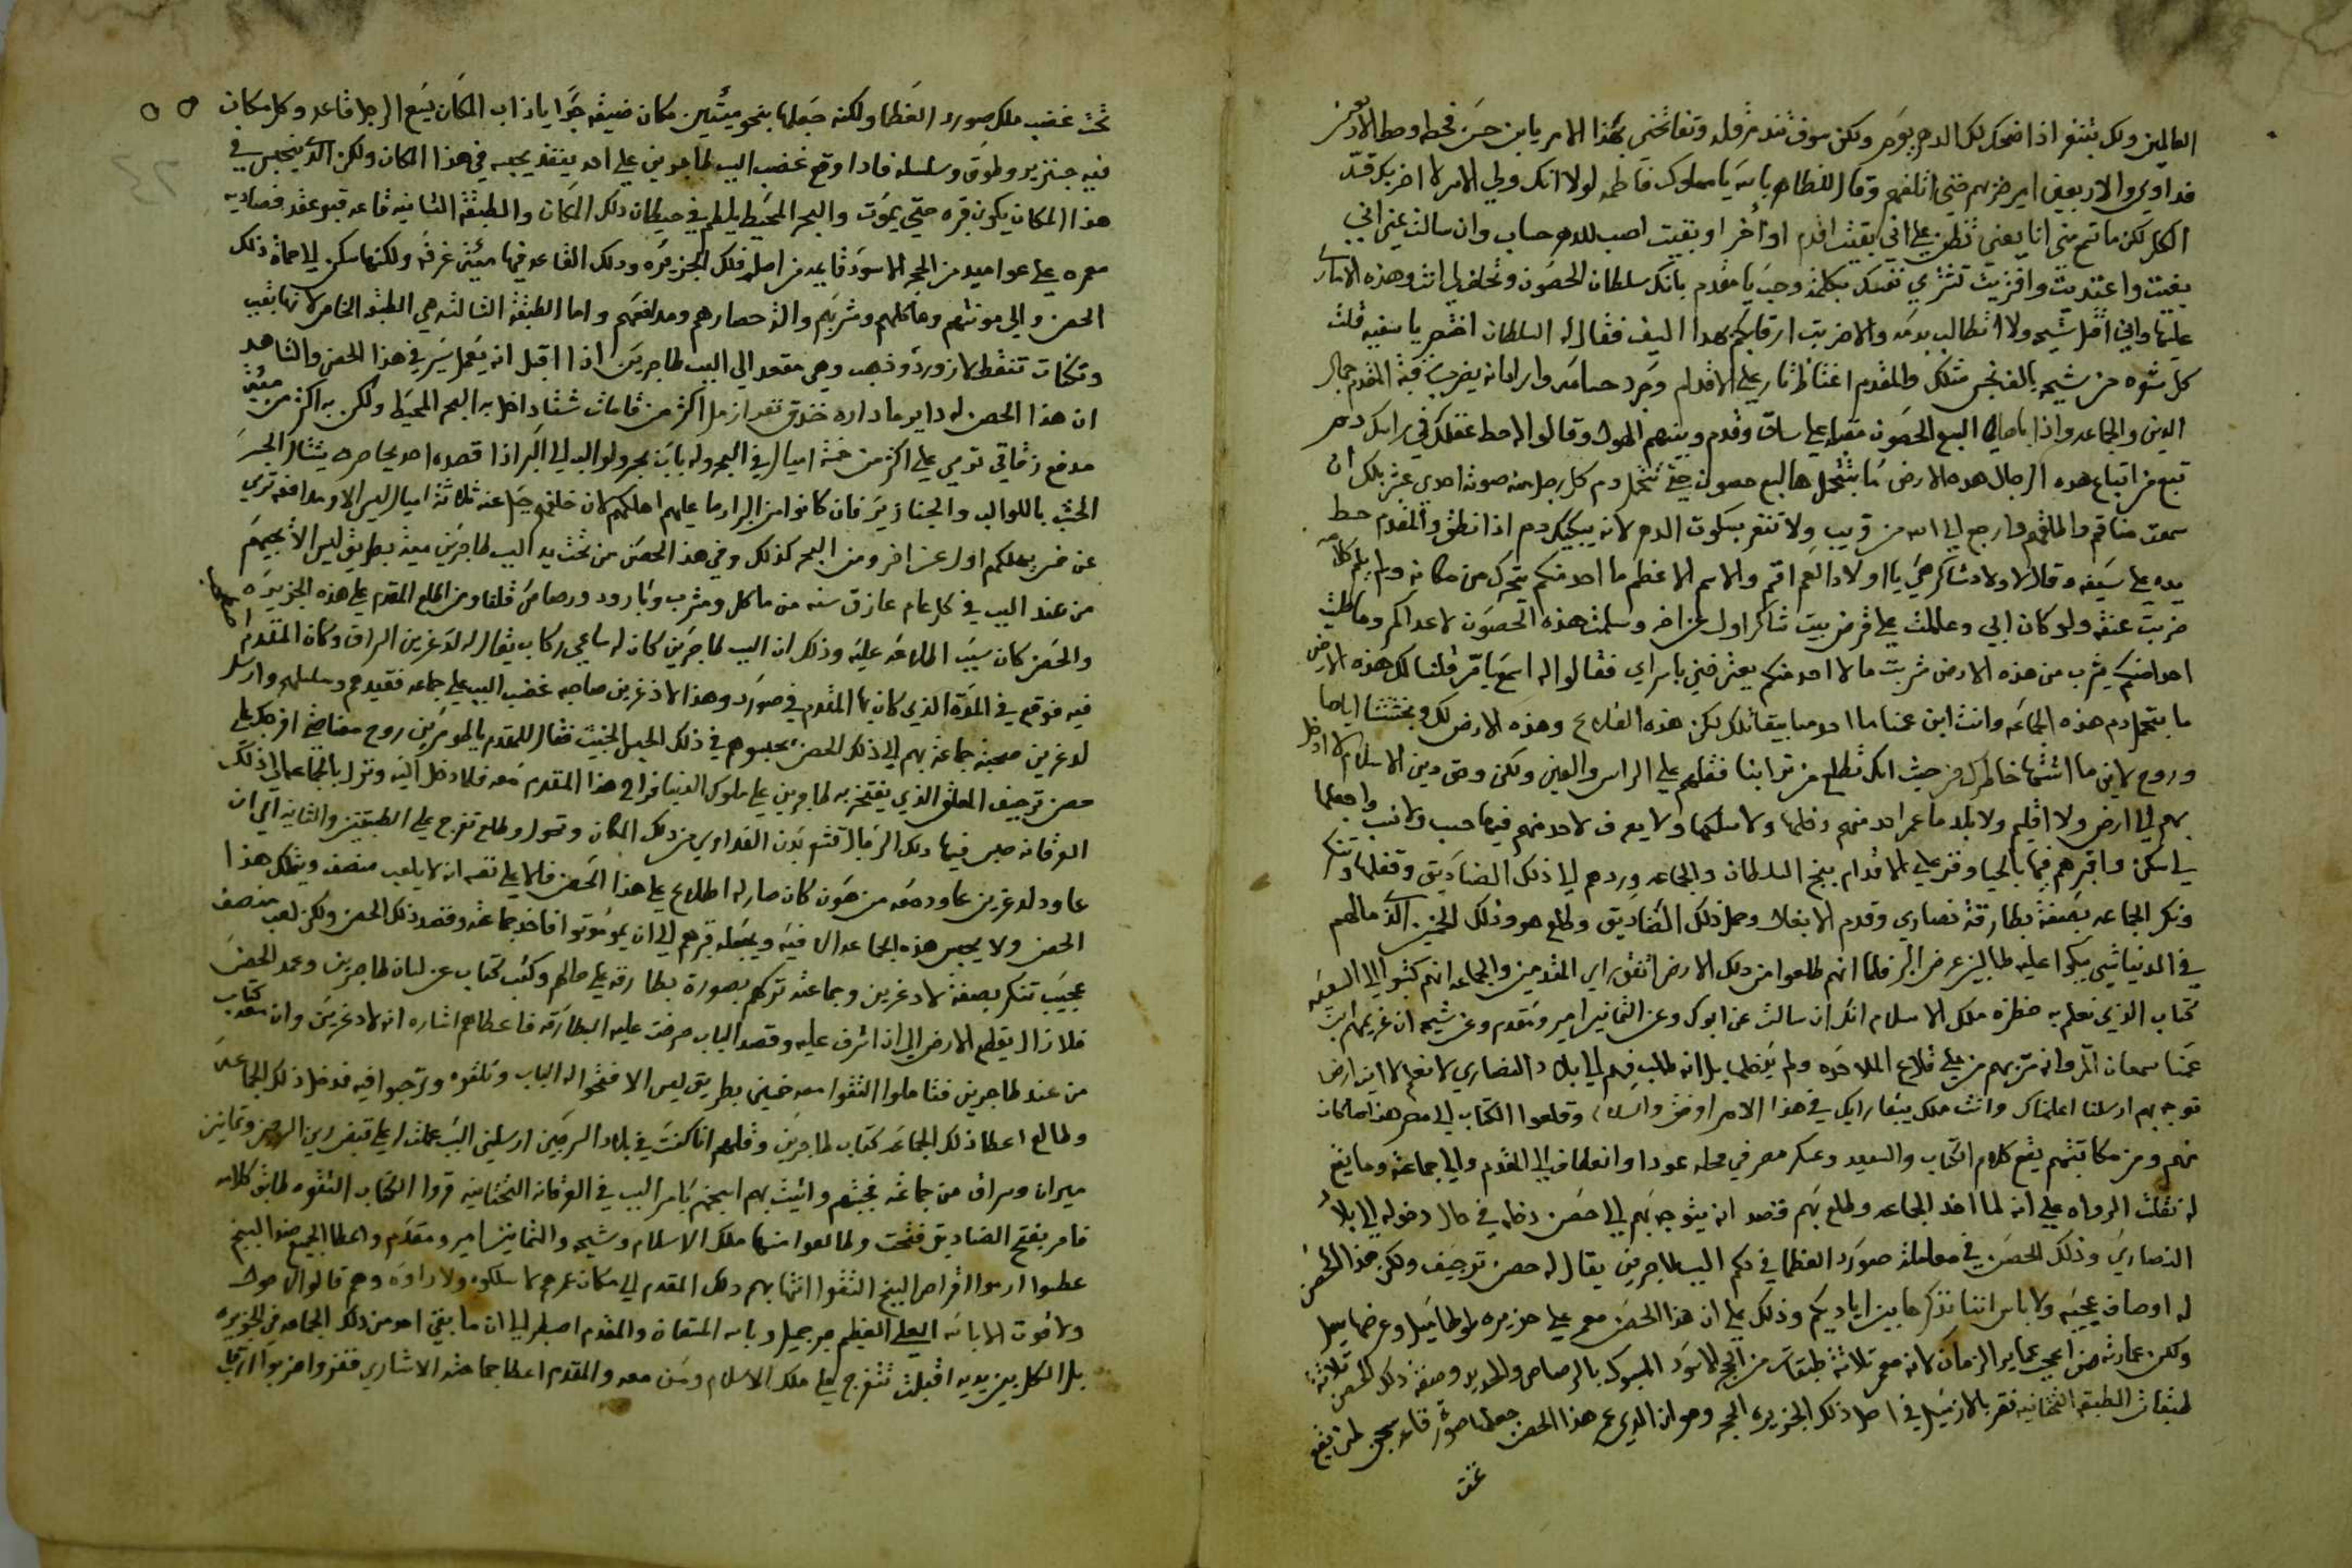 العالمين ولكن بتنغر اذا ضحك لك الدهر يوم ولكن سوف تندم قله وتفاتحني بهذا الامر يابن حسن فحط وسط الارض
فداوي والاربعين امير ضربهم حتى اتلفهم وقال للظاهر بالله يا مملوك فاطمه لولا انك ولي الامر لا اضربك قد
الكل لكن ما تم مني انا يعني تظن علي اني بقيت اقدم او أخر او بقيت احسب للدهر حساب وان سالت عني اني
بغيت واعتديت وافتريت تشتري نفسك بكلمة وحب يا مقدم بانك سلطان الحصون وتحلف لي انت وهذه الامارى
عليها واني اقل شيحه ولا اتطالب بدمه والا ضربت ارقابكم بهذا السيف فقال له السلطان اختصر يا سفيه قلت
كل شوه من شيحه بالف نجس مثلك والمقدم اغتاظ ثار علي الاقدام وجرد حسامه واراد انه يضرب رقبة المقدم جمال
الدين والجماعه واذا باصحاب السبع الحصون مقبله علي ساق وقدم وبينهم الهول وقالوا له حط عقلك في راسك دمر
تبع من اتباع هذه الرجال هده الارض ما بتتحمل هالسبع حصون حتى تتحمل دم كل رجل منه صوته احدى عشر بلك ان
سمعت منا قم واطلقهم وارجع الي الله من قريب ولا تنغر بسكوت الدهر لانه يبكيك دم اذا نطق والمقدم حط
يده علي سيفه وقال لاولاد شاكر هي يا اولاد العم اقم والاسم الاعظم ما احد منكم يتحرك من مكانه ولم يلم كلامه
ضربت عنقه ولو كان ابي وعاملت علي قرض بيت شاكر اول عن اخر وسلمت هذه الحصون لاعداكم وما خليت
احد منكم يشرب من هذه الارض شربت ما لا احد منكم يعترضني باسراي فقالوا له اسمع يا قر قلنا لك هذه الارض
ما بتحمل دم هذه الجماعه وانت ابن عمنا ما احد منا بيقاتلك لكن هذه القلاع وهذه الارض لك وبخشتنا اياها
وروح لاين ما اشتها خاطرك من حيث انك تطلع من ترابنا فقلهم علي الراس والعين ولكن وحق دين الاسلام لا ادخل
بهم الي ارض ولا اقليم ولا بلد ما عمر احد منهم دخلها ولا سلكها ولا يعرف لاحد منهم فيها حسب ولا نسب واجعلها
لي سكن واقبرهم فيها بالحيا وفز علي الاقدام بنج السلطان والجماعه وردهم الي ذلك الصناديق وقفلها وتنكر
ونكر الجماعه بصفة بطارقة نصاري وقدم الابغال وحمل ذلك الصناديق وطلع هو وذلك الخمسين الذ ما لهم
في الدنيا شي يبكوا عليه طالبين عرض البر فلما انهم طلعوا من ذلك الارض اتفق راي المقدمين والجماعه انهم كتبوا الي السعيد
كتاب الذي نعلم به حضرة ملك الاسلام انك ان سالت عن ابوك وعن الثمانين امير ومقدم وعن شيحه ان غريمهم ابن
عمنا سمعان الم وانه سربهم من علي قلاع الملاحده ولم يخلها بل انه طالب فيهم الي بلاد النصاري لا نعلم لا اين ارض
توجه بهم ارسلنا اعلمناك وانت ملك يبقا رايك في هذا الامر اوفق والسلام وقلعوا الكتاب الي مصر هذا ما كان
منهم ومن مكاتبتهم يقع كلام الكتاب والسعيد وعسكر مصر في محله عودا وانعطاف الي المقدم والي جماعته وما يقع
له نقلت الرواه علي انه لما اخد الجماعه وطلع بهم قصد انه يتوجه بهم الي حصن دخله في حال دخوله الي بلاد
النصاري وذلك الحصن في معاملة صورد العظما في حكم البب طاجرين يقال له حصن توجيف ولكن هذا الحصن
له اوصاف عجيبه ولا باس اننا نذكرها بين اياديكم وذلك علي ان هذا الحصن معمر علي جزيره طولها ميل وعرضها ميل
ولكن عمارته من اعجب عماير الزمان لانه معمر ثلاثة طبقات من الحجر الاسود المسبوك بالرصاص والحديد وصفة ذلك الحصن ثلاثة
طبقات الطبقه التحتانيه نقر بالازميل في اصل ذلك الجزيره الحجر وهو ان الذي عمر هذا الحصن جعلها صورة قاعه سجن لمن يقع
تحت
٥٥
تحت غضب ملك صورد العظما ولكنه جعلها بنحو ميتين مكان ضيقه جدا ياذاب المكان يسع الرجل قاعد وكل مكان
فيه جنزير وطوق وسلسله فاذا وقع غضب البب طاجرين علي احد ينفد يحبسه في هذا المكان ولكن الذ ينحبس في
هذا المكان يكون قبره حتى يموت والبحر المحيط يلطم في حيطان ذلك المكان والطبقة الثانيه قاعه قبو عقد فصاديه
معمره علي عواميد من الحجر الاسود قايمه من اصل ذلك الجزيره وذلك القاعه فيها ميتين غرفه ولكنها سكن لاجماعة ذلك
الحصن والي مونتهم وماكلهم ومشربهم والة حصارهم ومدافعهم واما الطبقة الثالثه هي الطبقه الخاص لانها بقيب
وتكنات تنقط لازورد وذهب وهي مقعد الي البب طاجرين اذا اقبل انه يعمل سير في هذا الحصن والشاهد
ان هذا الحصن له داير ما داره خندق نقر ازميل اكثر من قامات شتا داخل به البحر المحيط ولكن به اكثر من ميتين
مدفع زقاقي ترمي علي اكثر من خمسة اميال في البحر وله باب بجر ولوالب الي البر اذا قصده احد يحاصره يتشال الجسر
الخشب باللوالب والجنازير فان كانوا من البر ارما عليهم اهلكهم لان خلفهم جبل عنه ثلاثة اميال ليس الا ومدافعه ترمي
عن خمس يهلكهم اول عن اخر ومن البحر كذلك وفي هذا الحصن من تحت يد البب طاجرين مية بطريق ليس الا يجيهم
من عند البب في كل عام عازق سنه من ماكل ومشرب وبارود ورصاص قلنا ومن اطلع المقدم علي هذه الجزيره
والحصن كان سبب اطلاعه عليه وذلك ان البب طاجرين كان له ساعي ركاب يقال له لدغرين الراق وكان المقدم
فيه فوقع في المدة الذي كان بها المقدم في صورد وهذا لادغرين صاحبه غضب البب علي جماعه فقيدهم وسلسلهم وارسل
لدغرين صحبة جماعة بهم الي ذلك الحصن يحبسوهم في ذلك الحبس الخبيث فقال للمقدم يا طومرين روح معنا حتى افرجك علي
حصن توجيف المعلق الذي يفتخر به طاجرين علي ملوك الدنيا فراح هذا المقدم معه فلا دخل اليه ونزل بالجماعه الي ذلك
العرقانه حبس فيها ذلك الرجال قشع بدن الفداوي من ذلك المكان وتحول وطلع تفرج علي الطبقتين والثانيه الي ان
عاود لدغرين عاود معه من هون كان صار له اطلاع علي هذا الحصن فالا علي نفسه انه لا يلعب منصف ويتملك هذا
الحصن ولا يحبس هذه الجماعه الا فيه ويجعله قبرهم الي ان يموتوا فاخد جماعته وقصد ذلك الحصن ولكن لعب منصف
عجيب تنكر بصفة لادغرين وجماعته تركهم بصورة بطارقه علي حالهم وكتب كتاب عن لسان طاجرين وعمد الحصن
فلا زال يقطع الارض الي ان اشرف عليه وقصد الباب صرخت عليه البطارقه فاعطاهم اشاره انه لادغرين وان معه كتاب
من عند طاجرين فتاملوا التقوا معه خمسين بطريق ليس الا فتحوا له الباب وتلقوه وترحبوا فيه فدخل ذلك الجماعه
وطالع اعطا ذلك الجماعه كتاب طاجرين وقلهم انا كنت في بلاد السرجين ارسلني البب عملت لي علي قبض رين المسلمين وثمانين
ميران وسراق من جماعته فجبتهم واتيت بهم اسجنهم بامر البب في العرقانه التحتانيه قروا الكتاب التقوه طابق كلامه
فامر بفتح الصناديق فتحت وطالعوا منها ملك الاسلام وشيحه والثمانين امير ومقدم واعطا الجميع ضد البنج
عطسوا ارموا اقراص البنج التقوا انتها بهم ذلك المقدم الي مكان عمرهم لا سلكوه ولا راوه وهم قالوا لا حول
ولا قوت الا بالله العلي العظيم صبر جميل وبالله المستعان والمقدم اصطبر الي ان ما بقي احد من ذلك الجماعه في الجزيره
بل الكل بين يديه اقبلت تتفرج علي ملك الاسلام ومن معه والمقدم اعطا جماعته الاشاره ففزوا ضربوا ارقاب